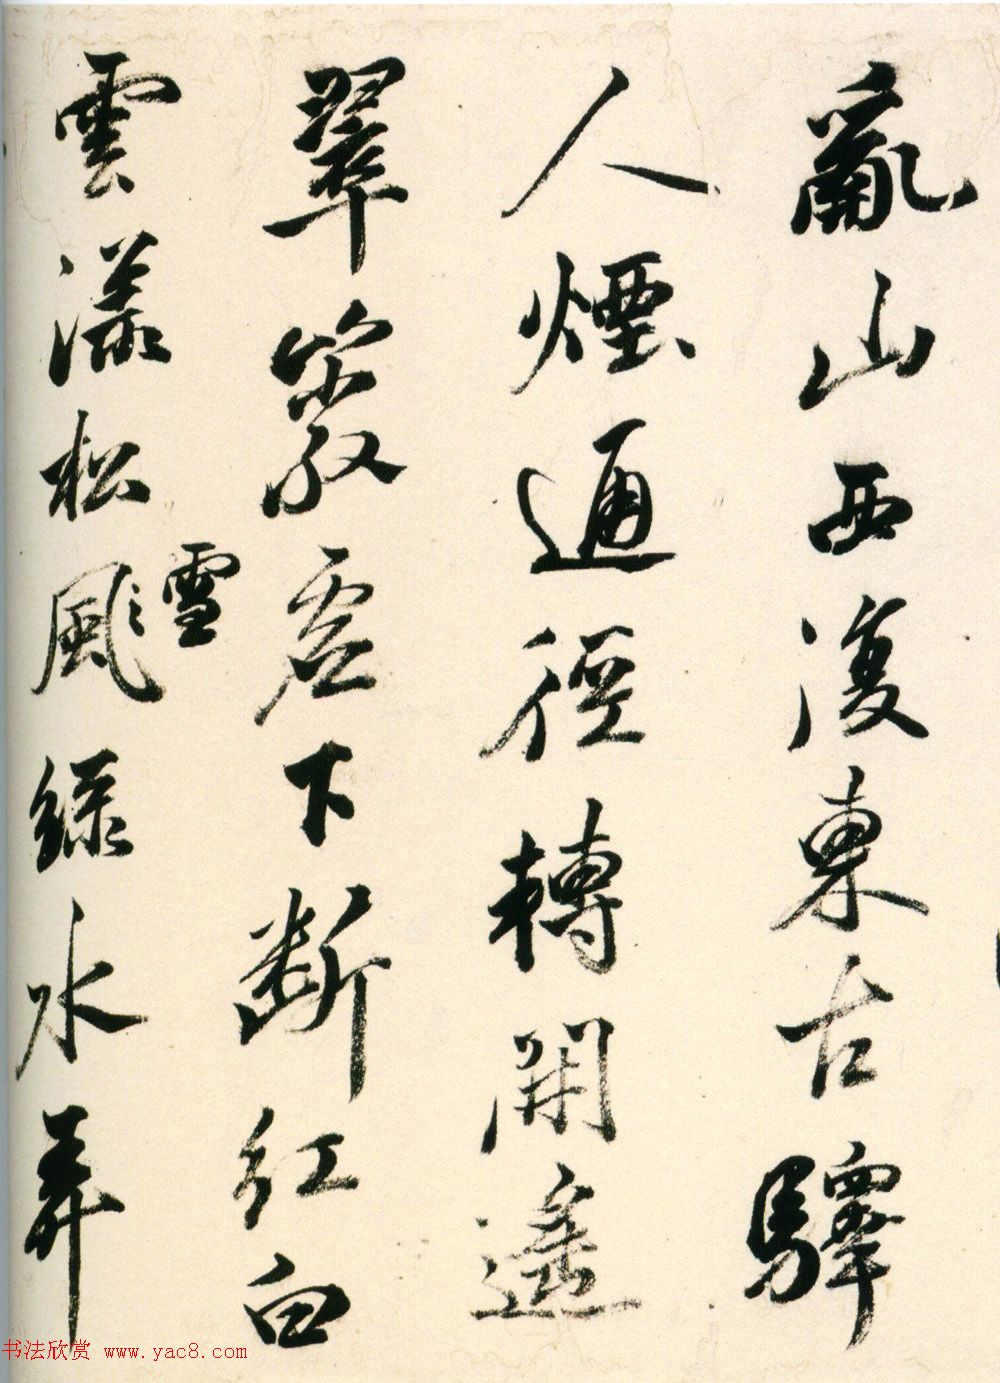 亂山西復東古驛
人煙通徑轉開遙
翠叢虛下斷紅白
雲漾松風綠水弄
雪
书法欣赏 www.yac8.com